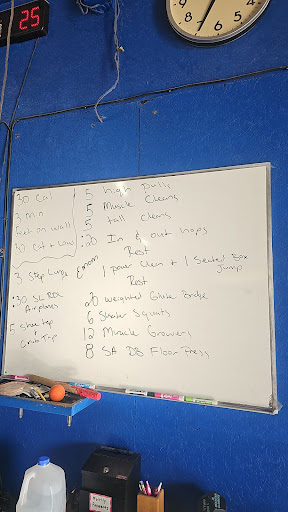 25
30 Cal
3 min
feet on wall
30 Cat + Cow
3 Step Lunge
:30 SL RDL
Airplanes
5 Shoe tap
+
Groin Tap
5 high pulls
5 Muscle Cleans
5 tall cleans
:20 In & out hops
Rest
Emom 1 power clean + 1 Seated Box
Jump
Rest
20 weighted Glute Bridge
6 Squats
12 Miracle Growers
8 SA DB Floor Press